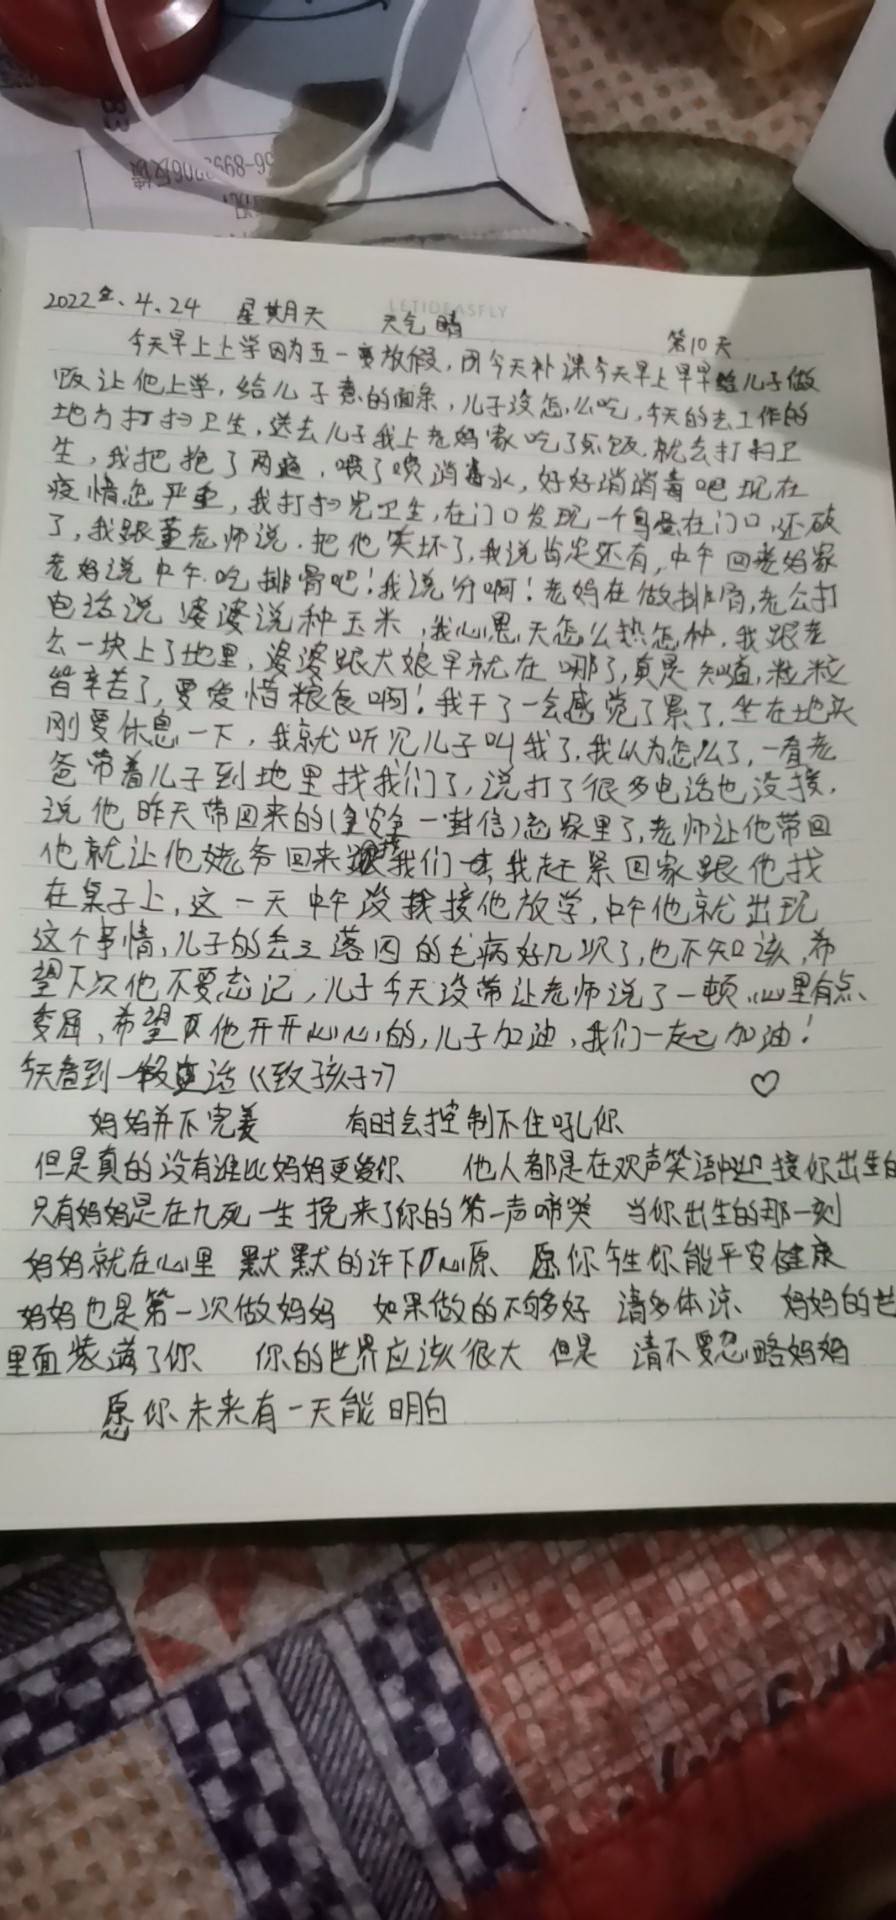 LETIDEASFLY
2022年.4.24 星期天 天气晴 第10天
今天早上上学因为五一要放假,所今天补课今天早上早早给儿子做
饭让他上学,给儿子煮的面条,儿子没怎么吃,今天的去工作的
地方打扫卫生,送去儿子我上老妈家吃了点饭,就去打扫卫
生,我把拖了两遍,喷了喷消毒水,好好消消毒吧现在
疫情怎严重,我打扫完卫生,在门口发现一个鸟蛋在门口,还破
了,我跟董老师说.把他笑坏了,我说肯定还有,中午回老妈家
老妈说中午吃排骨吧!我说分啊!老妈在做排骨,老公打
电话说婆婆说种玉米,我心思,天怎么热怎种,我跟老
公一块上了地里,婆婆跟大娘早就在哪了,真是知道,粒粒
皆辛苦了,要爱惜粮食啊!我干了一会感觉了累了,坐在地头
刚要休息一下,我就听见儿子叫我了,我以为怎么了,一看老
爸带着儿子到地里找我们了,说打了很多电话也没接,
说他昨天带回来的(安全一封信)忘家里了,老师让他带回
他就让他姥爷回来我们去,我赶紧回家跟他找
在桌子上,这一天中午没接他放学,中午他就出现
这个事情,儿子的丢三落四的毛病好几次了,也不知该,希
望下次他不要忘记,儿子今天没带让老师说了一顿,心里有点
委屈,希望他开开心心的,儿子加油,我们一起加油!
今天看到一段话《致孩子》 ♡
妈妈并不完美 有时会控制不住吼你
但是真的没有谁比妈妈更爱你 他人都是在欢声笑语中迎接你出生的
只有妈妈是在九死一生挽来了你的第一声啼哭 当你出生的那一刻
妈妈就在心里 默默的许下了心原 愿你今生你能平安健康
妈妈也是第一次做妈妈 如果做的不够好 请多体谅 妈妈的世
里面装满了你 你的世界应该很大 但是 请不要忽略妈妈
愿你未来有一天能明白